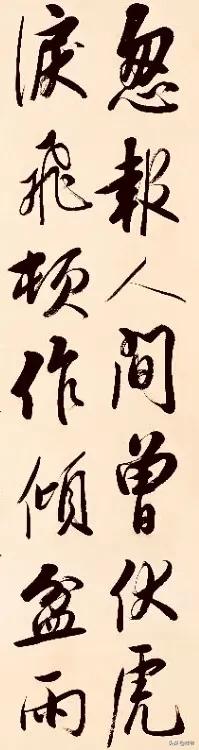 忽報人間曾伏虎
淚飛頓作傾盆雨